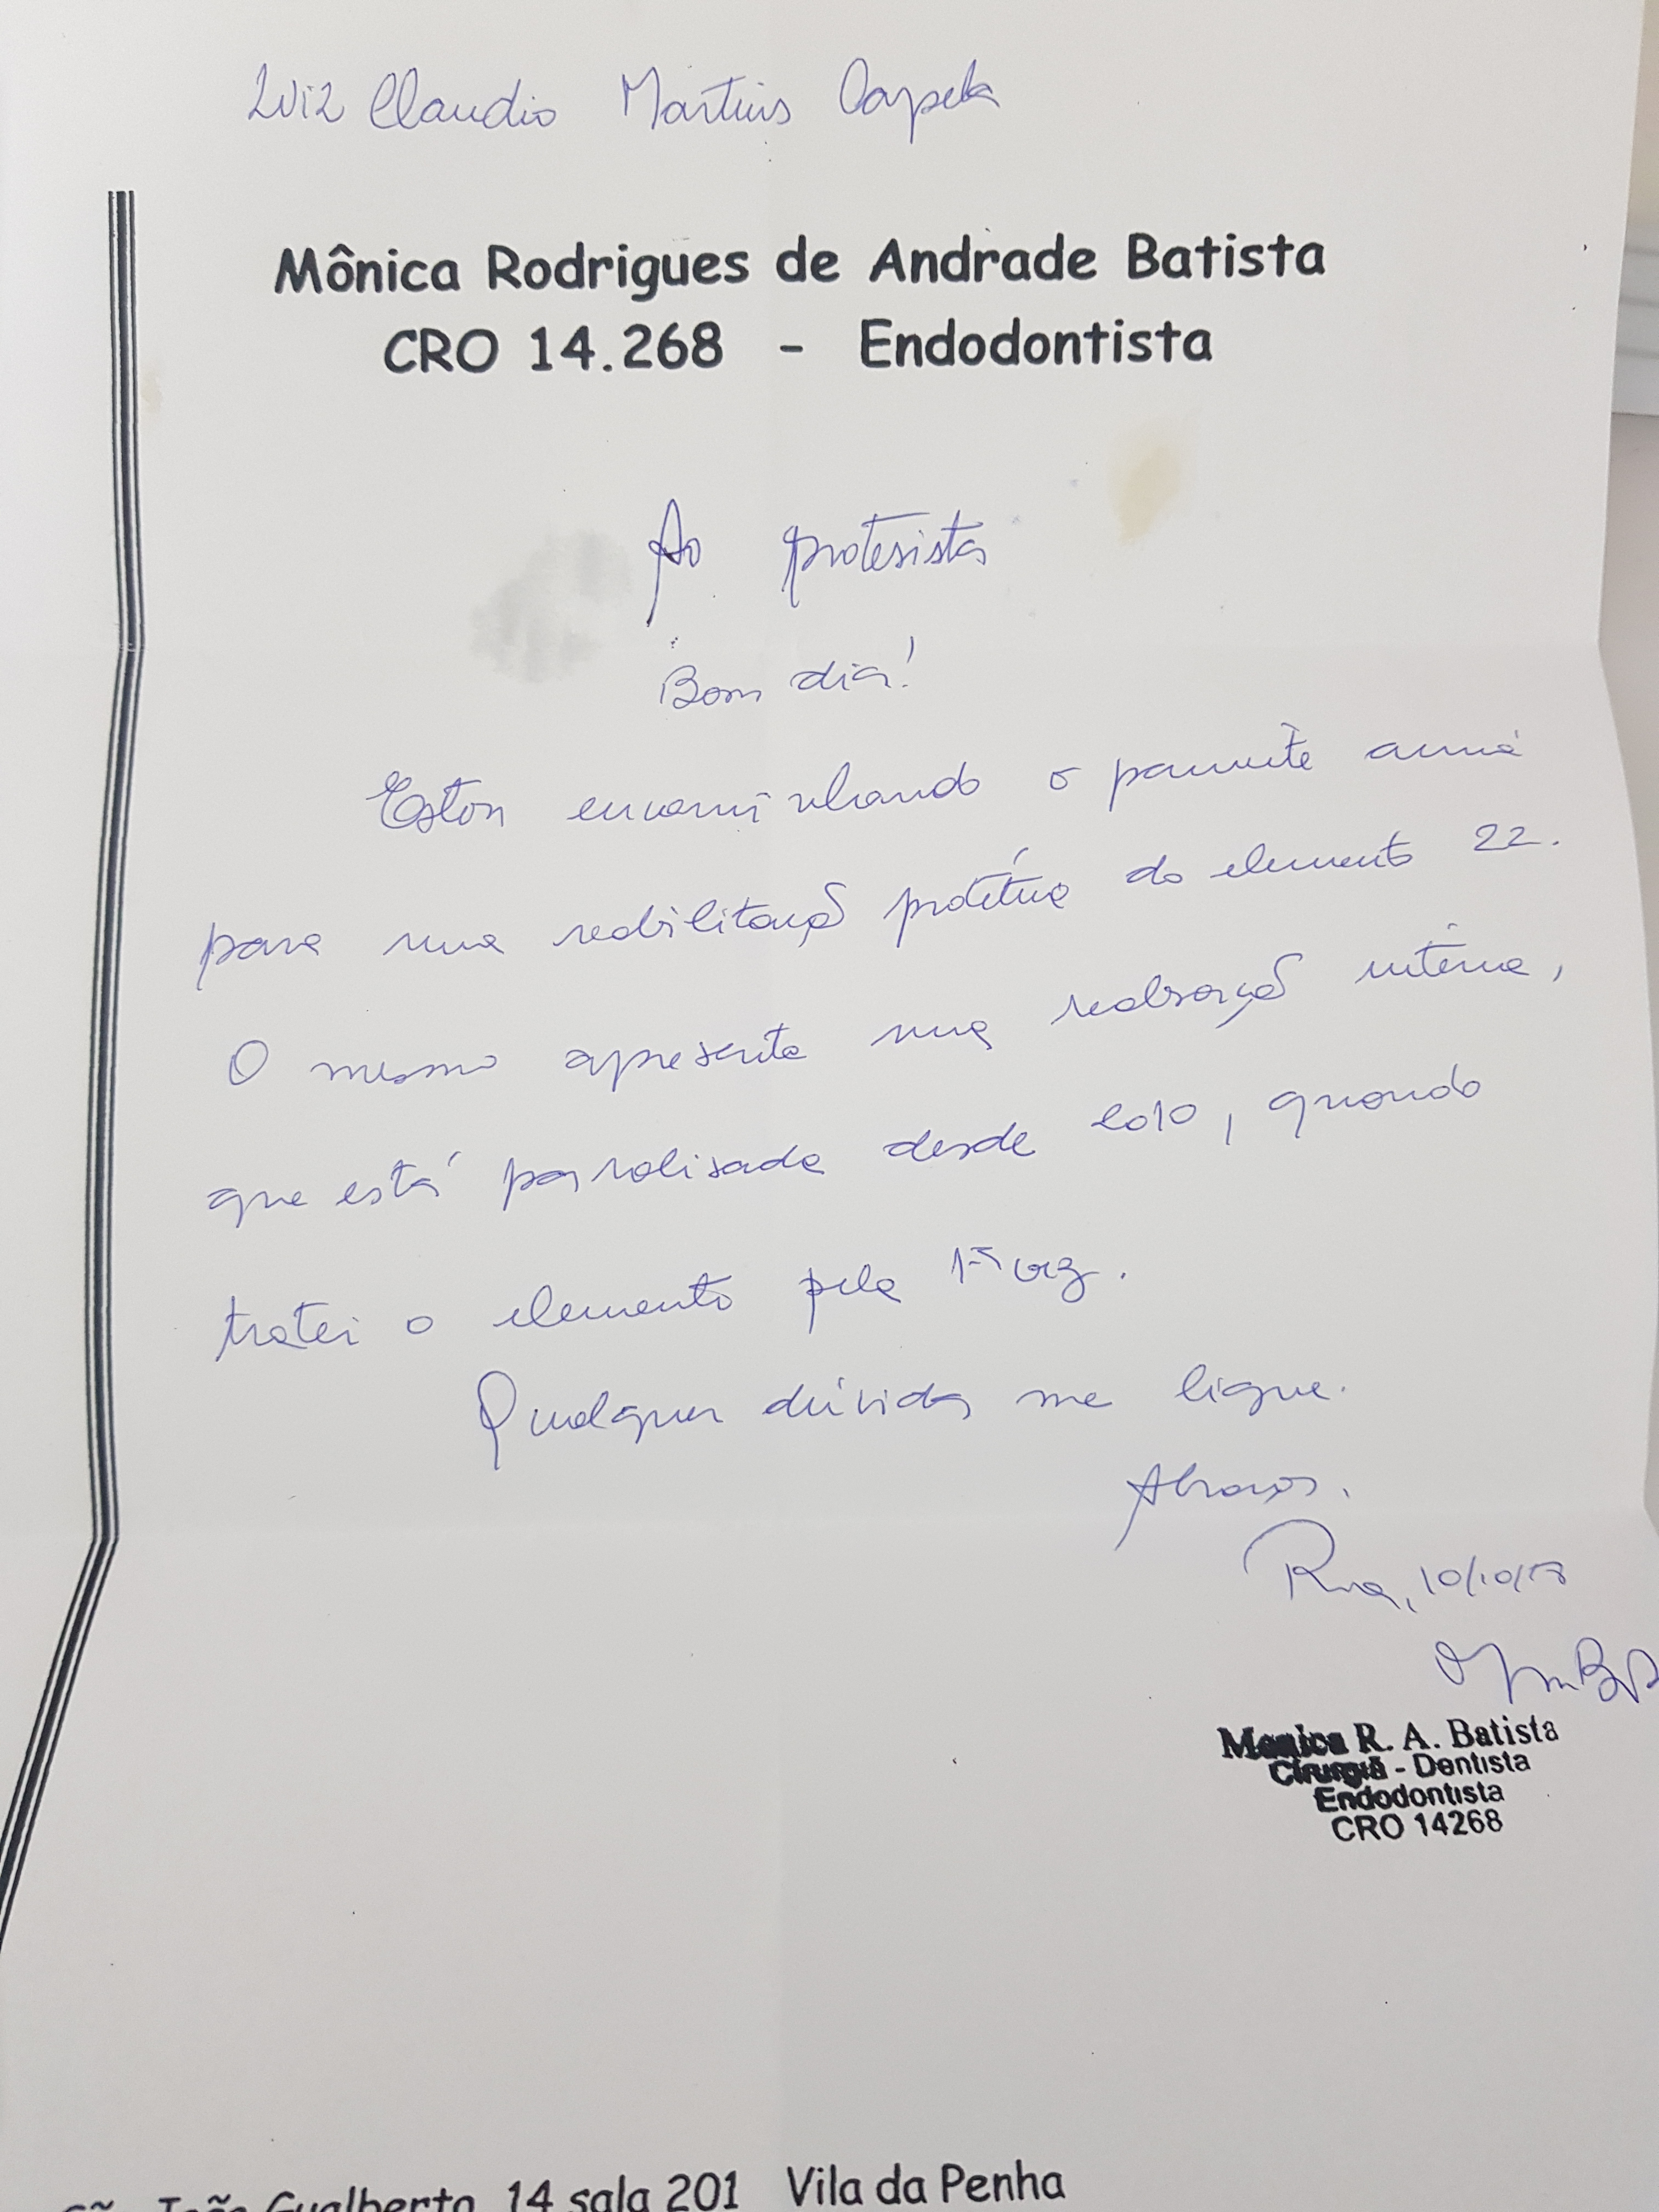 Luiz Claudio Martins Capela
Mônica Rodrigues de Andrade Batista
CRO 14.268 - Endodontista
Ao protesista
Bom dia!
Estou encaminhando o paciente acima
para uma reabilitação protética do elemento 22.
O mesmo apresenta uma reabsorção interna,
que está paralisada desde 2010, quando
tratei o elemento pela 1ª vez.
Qualquer dúvida me ligue.
Abraços.
10/10/18
Monica R. A. Batista
Cirurgiã - Dentista
Endodontista
CRO 14268
João Gualberto, 14 sala 201 Vila da Penha